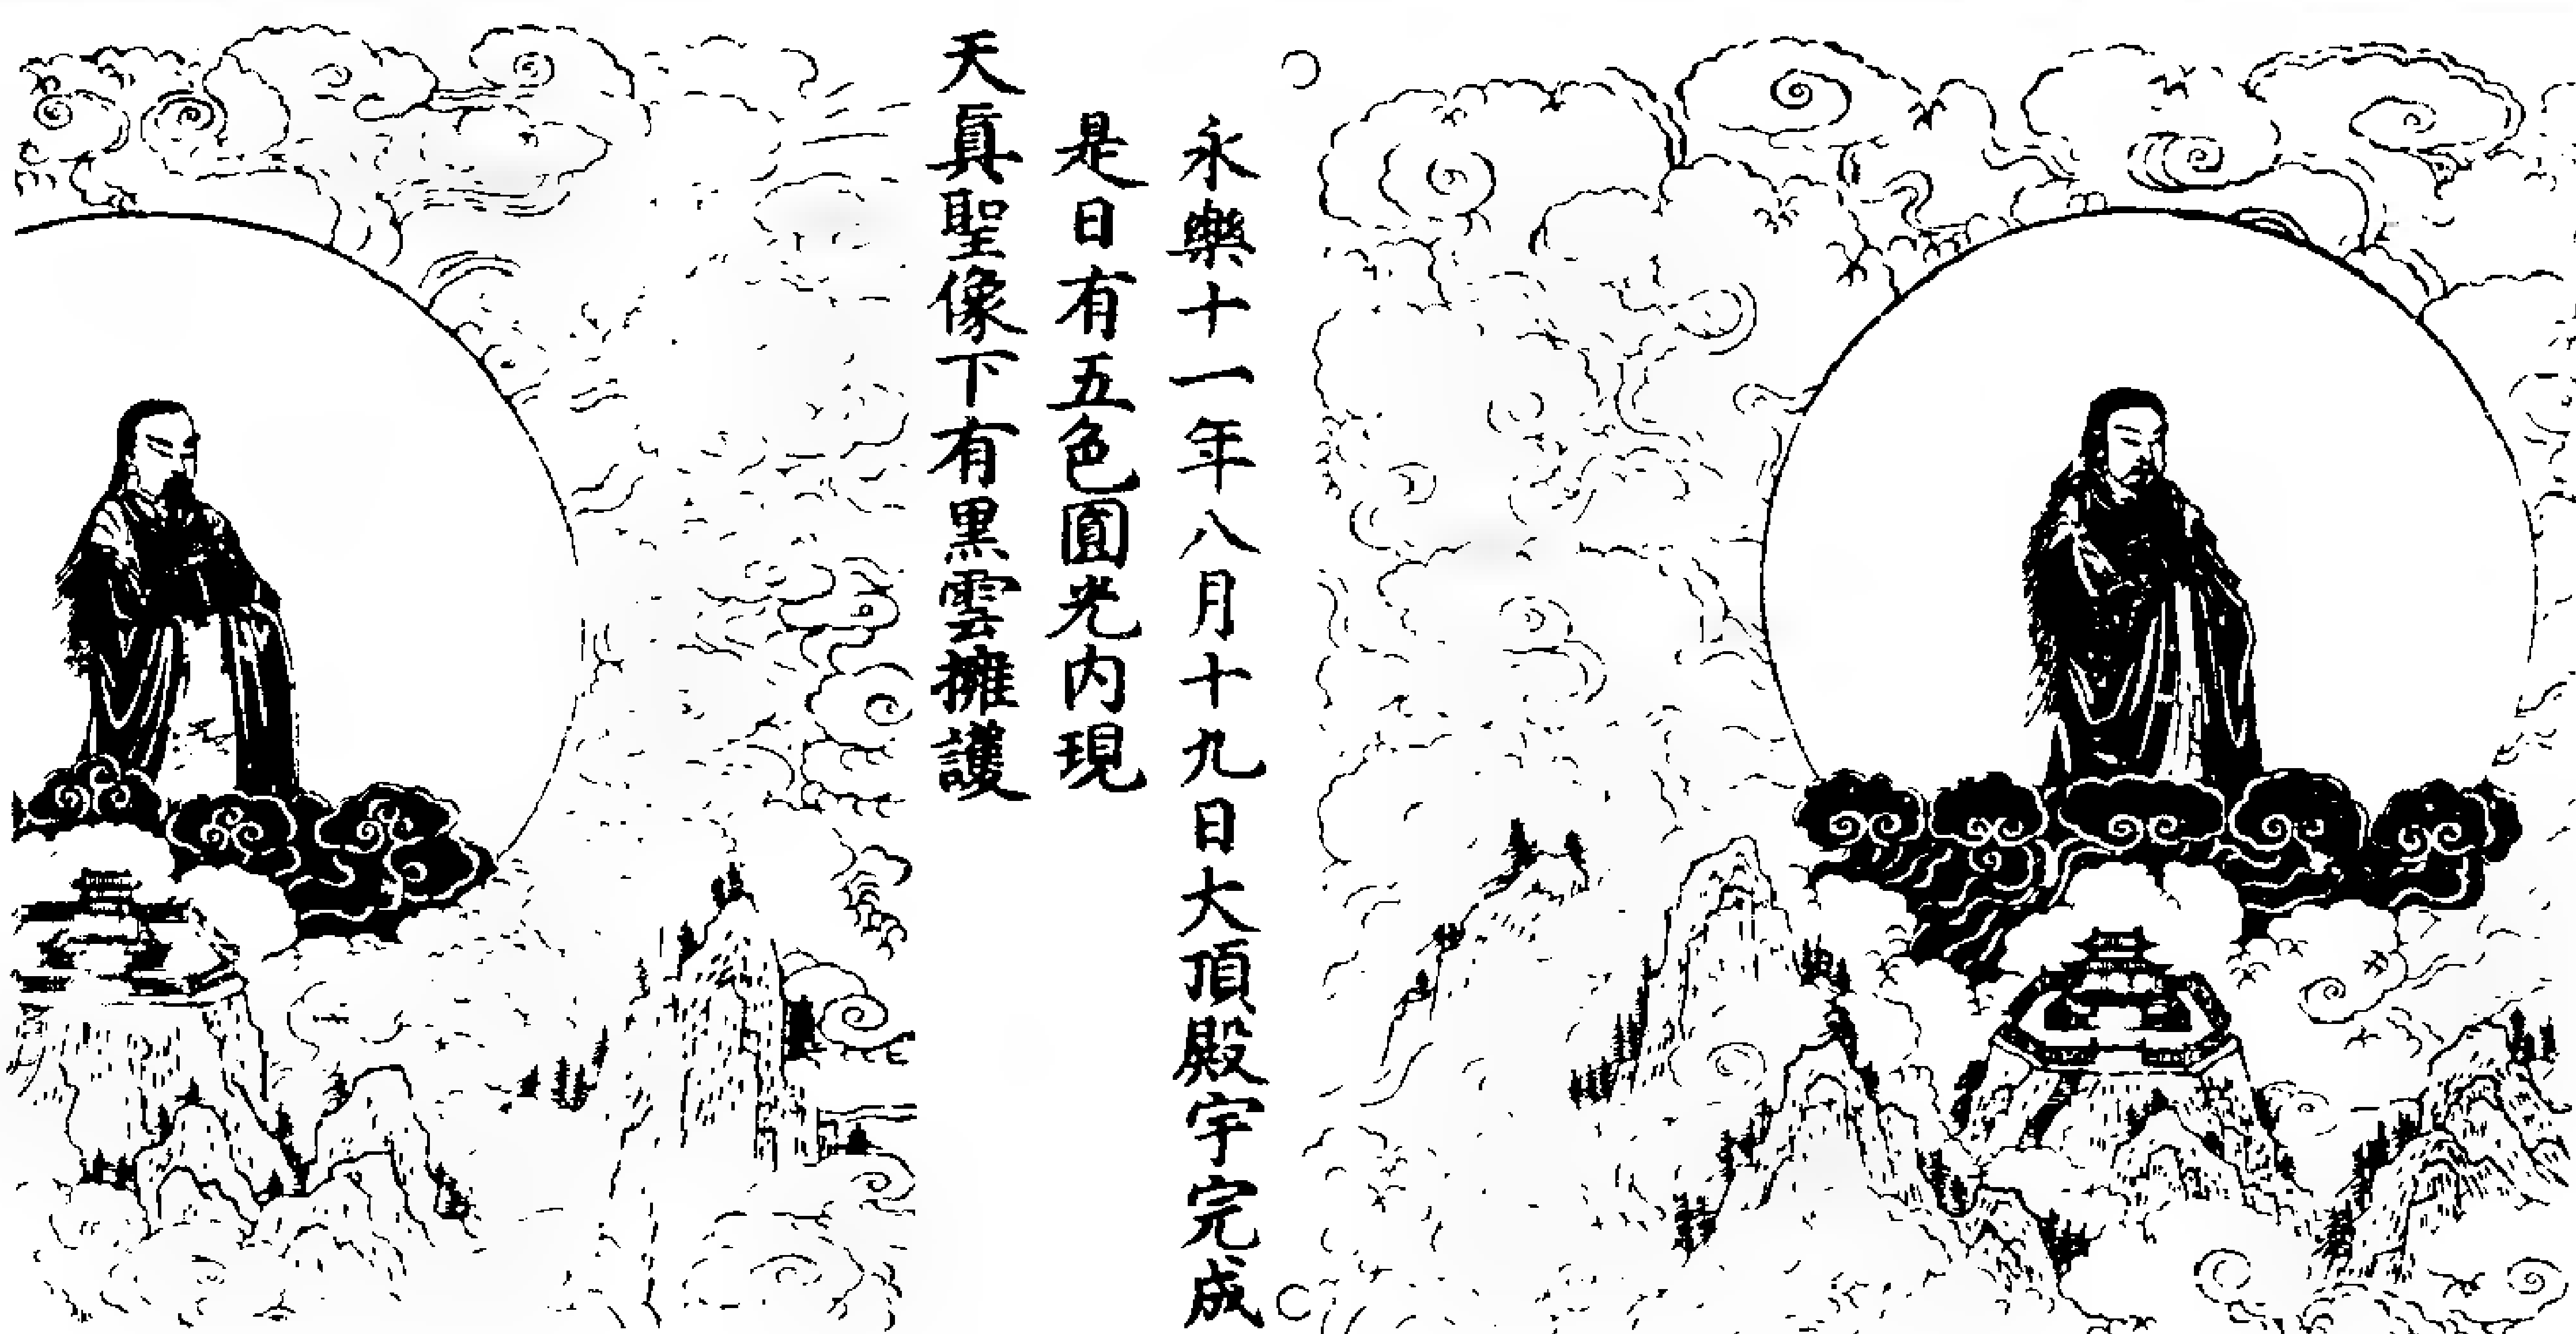 永樂十一年八月十九日大頂殿宇完成
是日有五色圓光內現
天眞聖像下有黑雲擁護